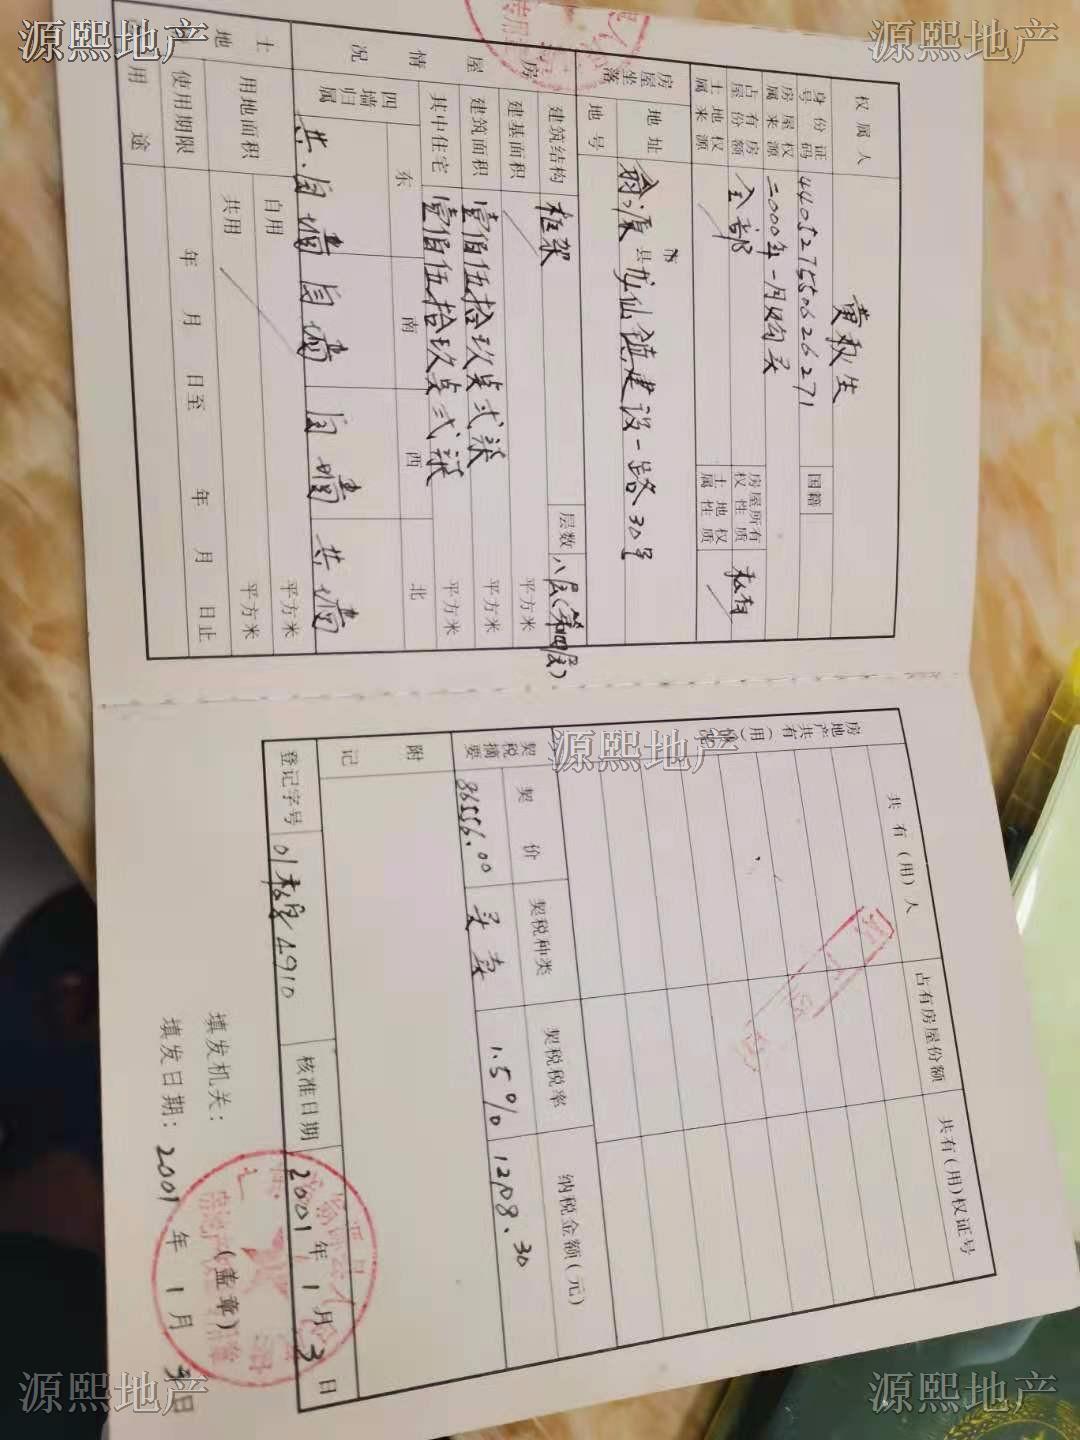 源熙地产
源熙地产
权属人 黄秋生
身份证号码 440527550626271 国籍
房屋权属来源 二000年一月购买 房屋所有权性质 私有
占有房屋份额 全部
土地权属来源 土地权属性质
房屋坐落 地址 翁源县龙仙镇建设一路30号
地号
房屋情况
建筑结构 框架 层数 八层(第四层)
建基面积 平方米
建筑面积 壹佰伍拾玖点弍 平方米
其中住宅 壹佰伍拾玖点弍 平方米
四墙归属 东 南 西 北
共、自墙 自墙 自墙 共墙
土地
用地面积 自用 平方米
共用 平方米
使用期限 年 月 日至 年 月 日止
用途
房地产共有(用)情况
共有(用)人 占有房屋份额 共有(用)权证号
源熙地产
契税摘要
契价 契税种类 契税税率 纳税金额(元)
86556.00 买卖 1.5% 1298.30
附记
登记字号 4910 核准日期 2001年1月3日
填发机关:
(盖章)
填发日期: 2001年1月 日
源熙地产
源熙地产